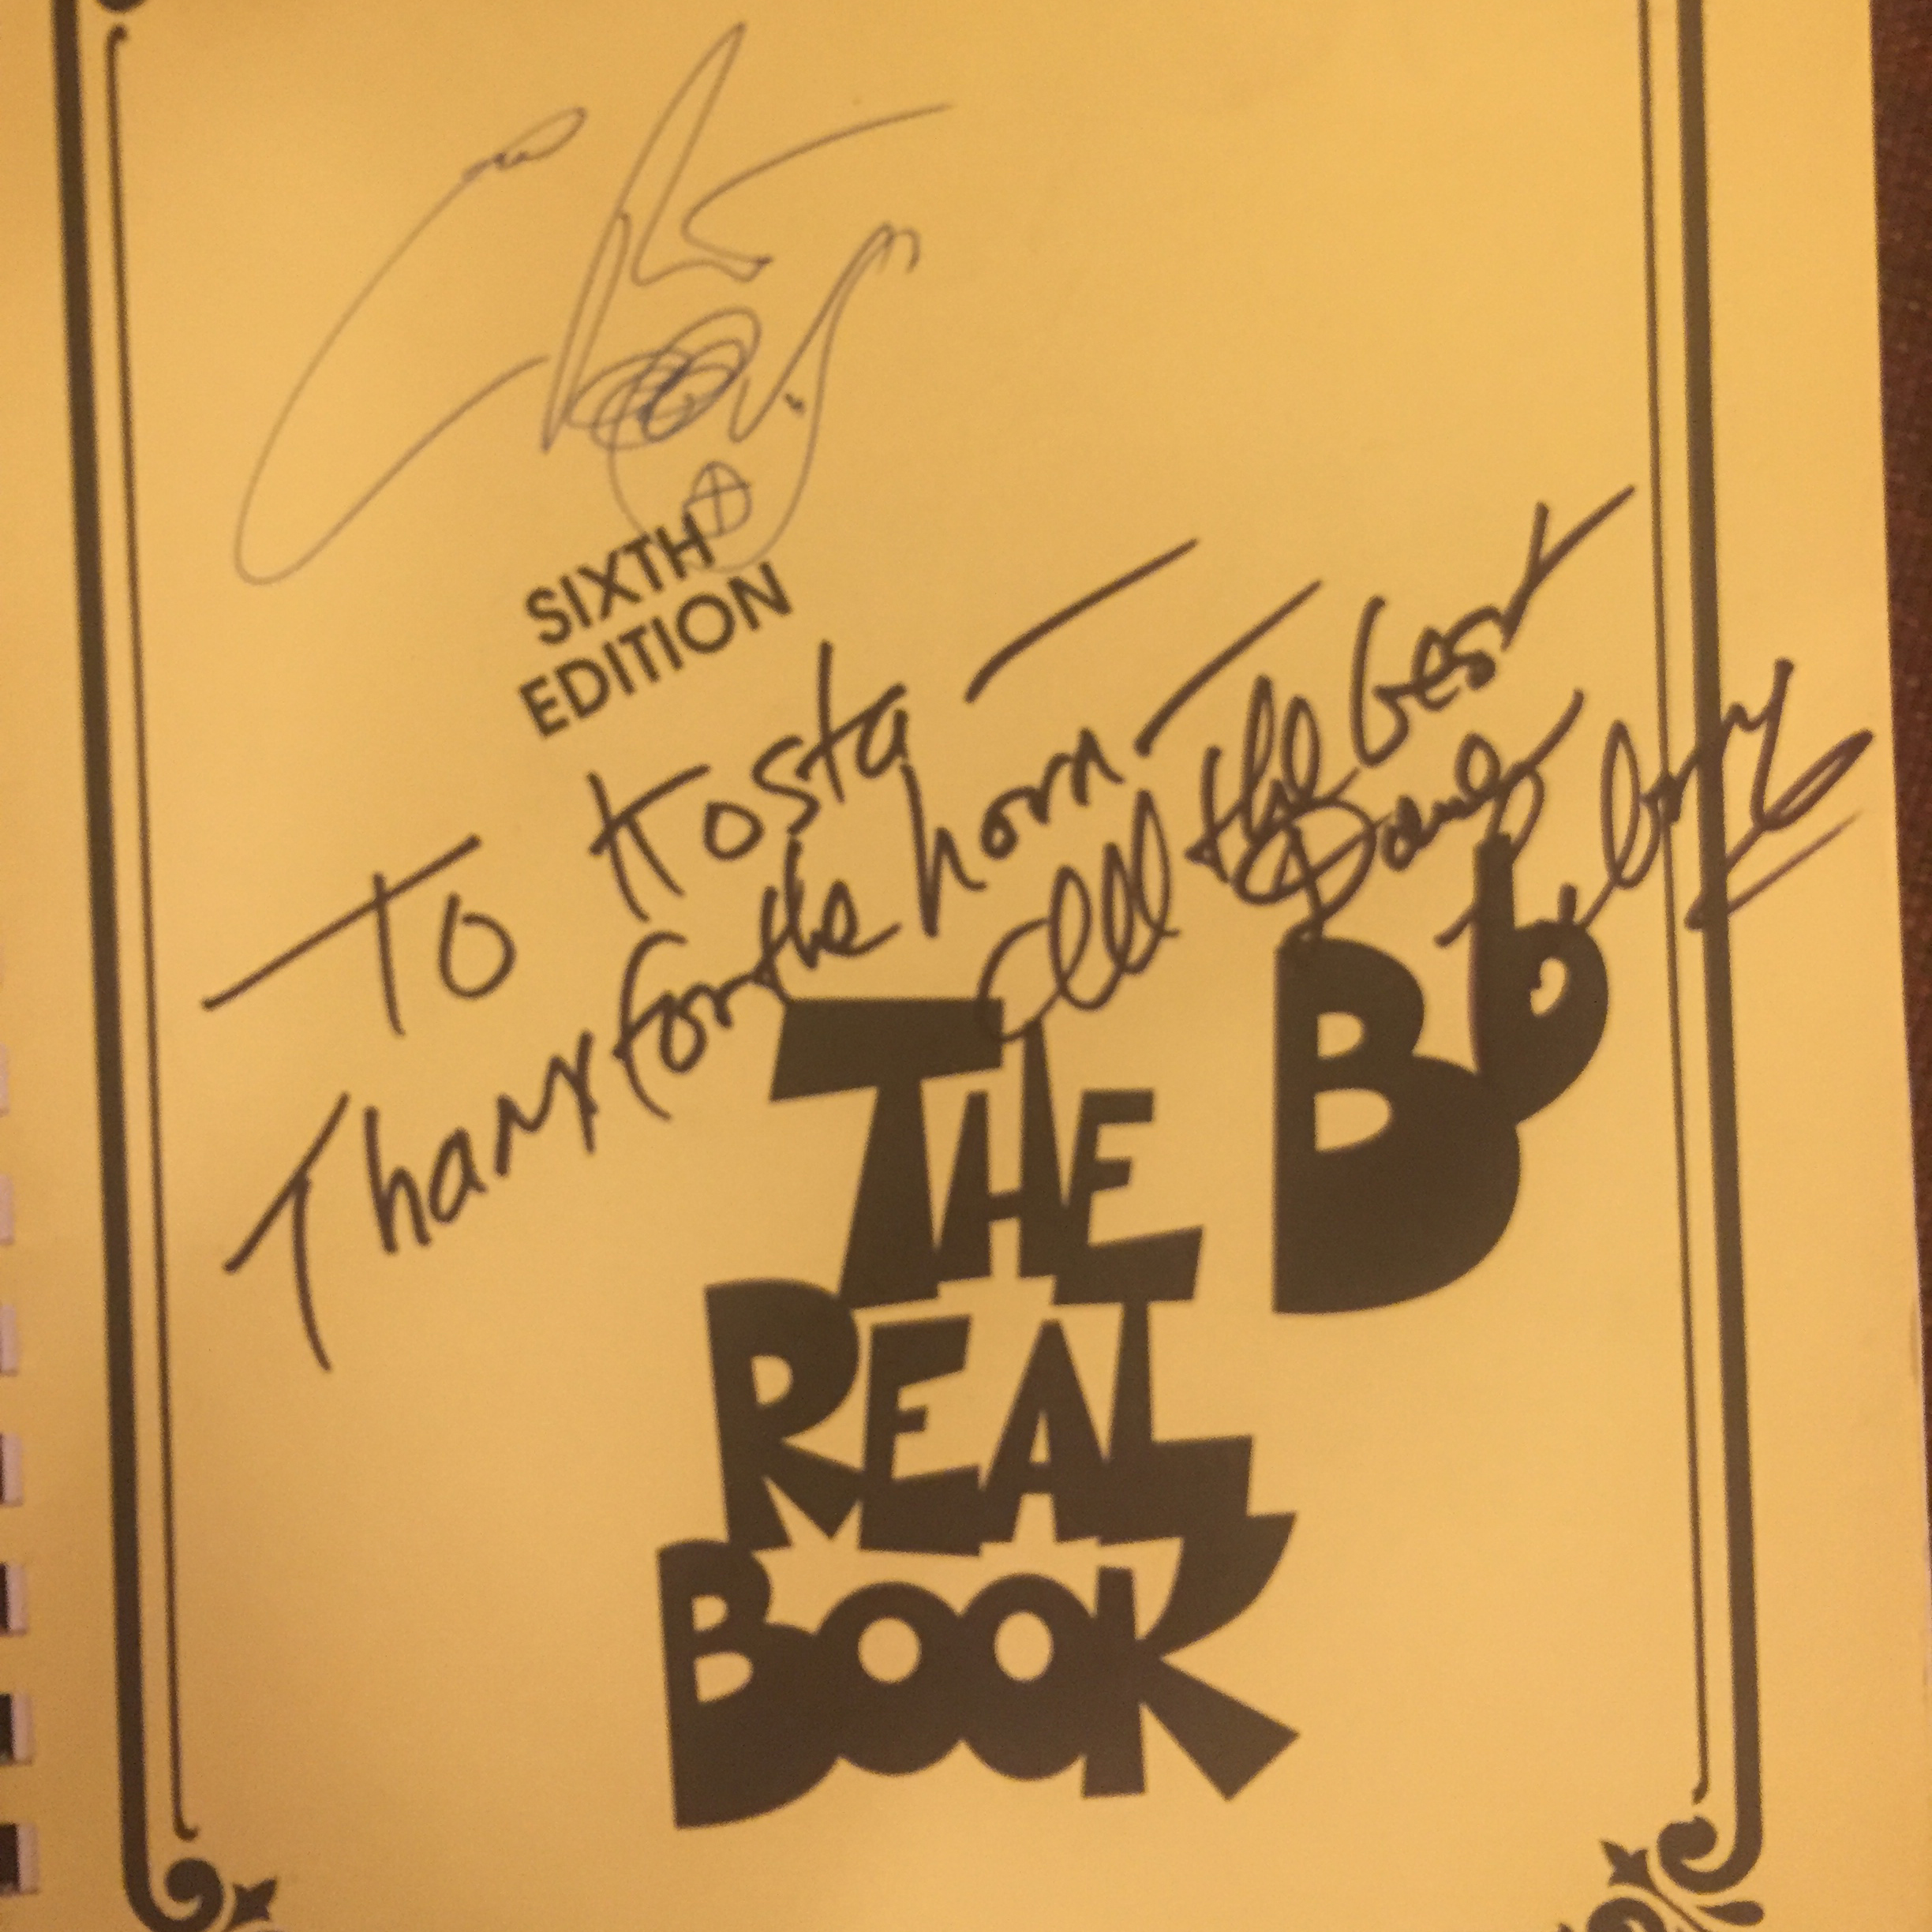 SIXTH
EDITION
To Kosta —
Thanx for the horn —
All the best
Dave
THE
B♭
REAL
BOOK